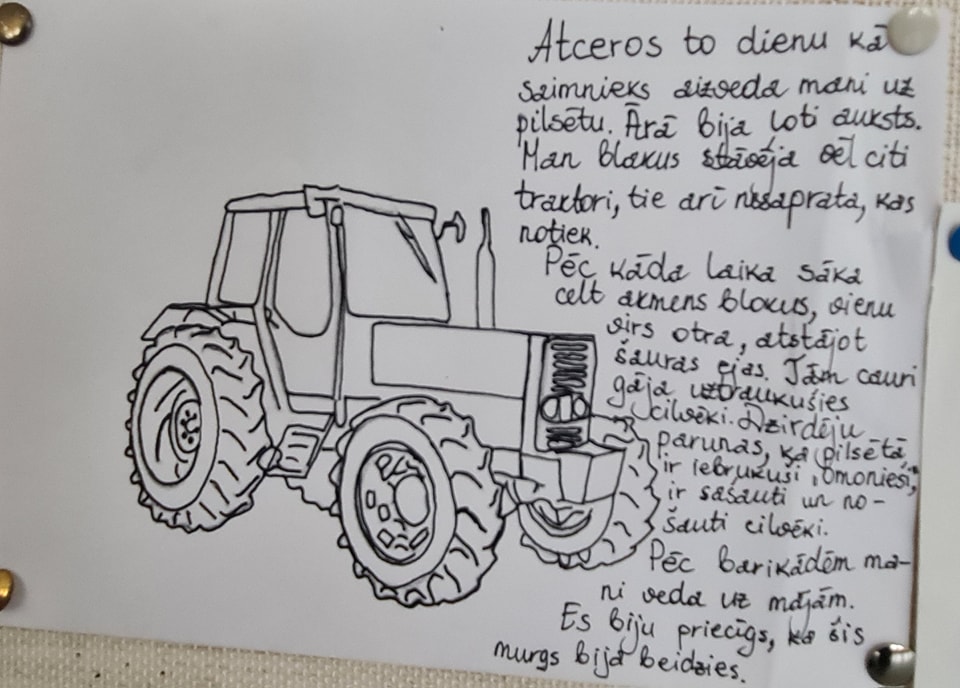 Atceros to dienu kā
saimnieks aizveda mani uz
pilsētu. Ārā bija ļoti auksts.
Man blakus stāvēja vēl citi
traktori, tie arī nesaprata, kas
notiek.
Pēc kāda laika sāka
celt akmens blokus, vienu
virs otra, atstājot
šauras ejas. Tām cauri
gāja uztraukušies
cilvēki. Dzirdēju
parunas, ka pilsētā
ir iebrukuši „omonieši”,
ir sašauti un no-
šauti cilvēki.
Pēc barikādēm ma-
ni veda uz mājām.
Es biju priecīgs, ka šis
murgs bija beidzies.